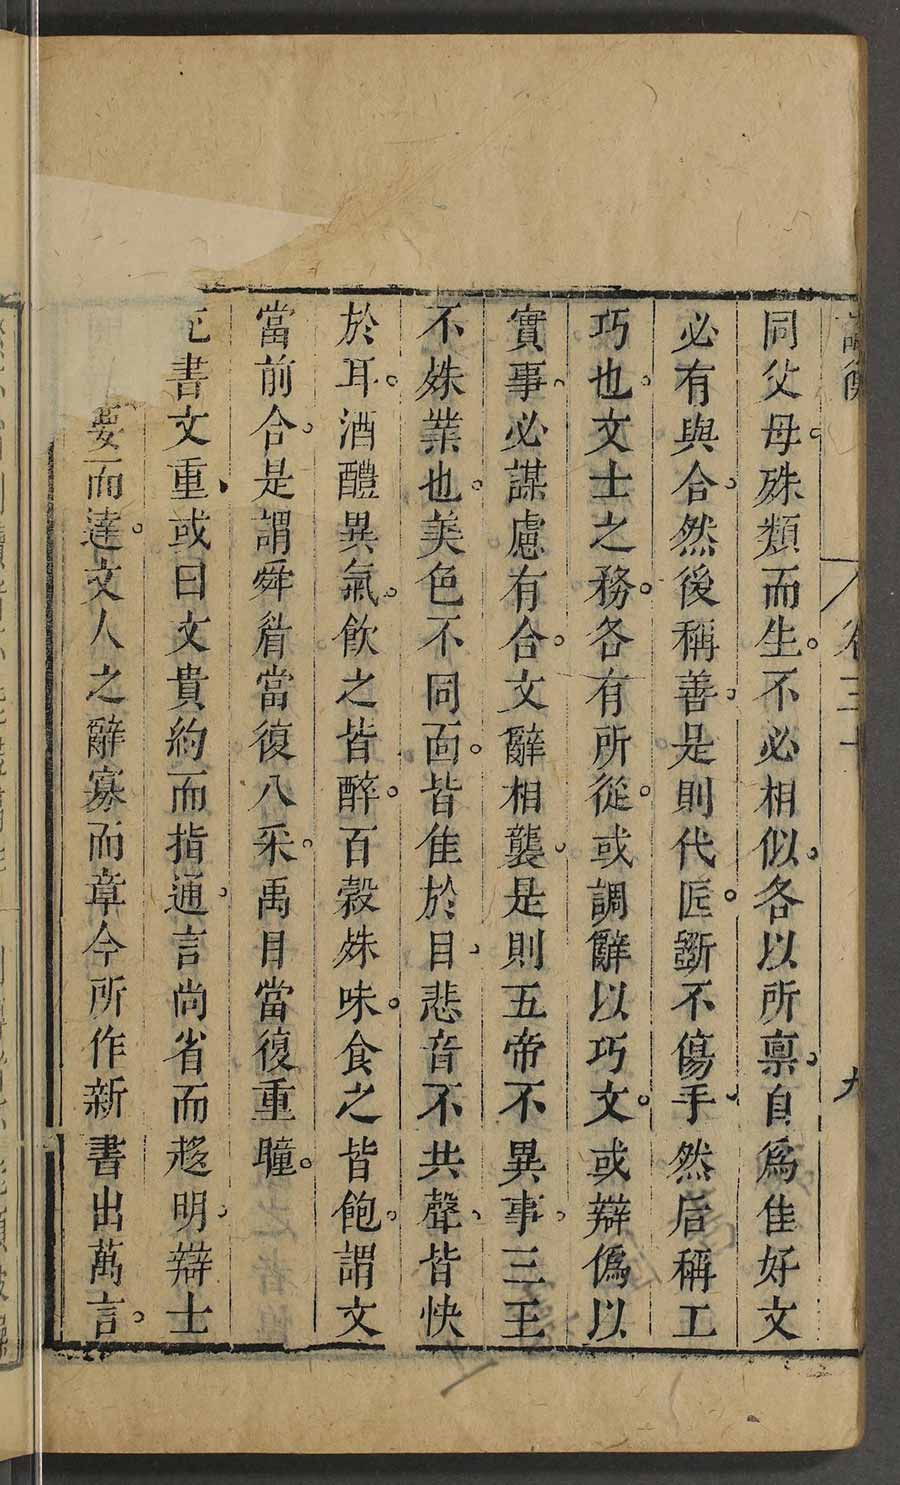 論衡 卷三十 九
同父母。殊類而生。不必相似。各以所禀。自爲佳好文
必有與合。然後稱善。是則代匠斵不傷手。然后稱工
巧也。文士之務。各有所從。或調辭以巧文。或辯僞以
實事。必謀慮有合。文辭相襲。是則五帝不異事。三王
不姝業也。美色不同面。皆佳於目。悲音不共聲。皆快
於耳。酒醴異氣。飲之皆醉。百穀姝味。食之皆飽。謂文
當前合。是謂舜眉當復八采。禹目當復重瞳。
充書文重。或曰文貴約而指通。言尚省而趍明。辯士
要而達。文人之辭寡而章今所作新書出萬言。